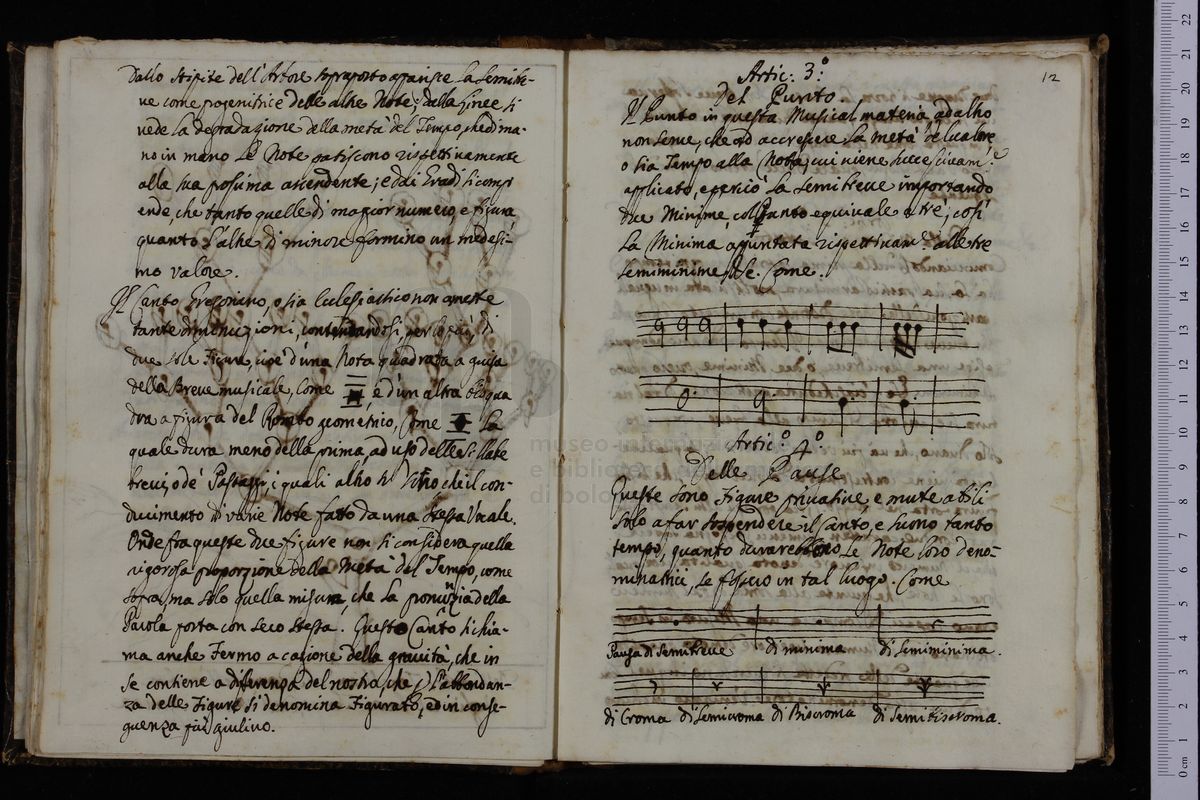 Dallo stipite dell'Arbore sopraposto apparisce la semibre-
ve come progenitrice delle altre Note; dalla linee si
vede la degradazione della metà del Tempo, che di ma-
no in mano le Note patiscono rispettivamente
alla sua prossima ascendente; e dai Gradi si compr
ende, che tanto quelle di maggior numero, e figura,
quanto l'altre di minore formino un medesi-
mo valore.
Il Canto Gregoriano, o sia Ecclesiastico non ammette
tante diminuzioni, contentandosi, per lo più, di
due sole Figure, cioè d'una Nota quadrata a guisa
della Breve musicale, come e d'un altra
dra a figura del Rombo geometrico, Come La
quale dura meno della prima, ad uso delle Sillabe
brevi, o de' Passaggi, i quali altro che il con-
ducimento di varie Note fatto da una stessa Vocale.
Onde fra queste due figure non si considera quella
rigorosa proporzione della Metà del Tempo, come
sopra, ma solo quella misura, che la pronunzia della
Parola porta con seco stessa. Questo Canto si chia-
ma anche Fermo a cagione della gravità, che in
se contiene a differenza del nostro, che p l'abbondan-
za delle Figure si denomina Figurato, ed in conse-
guenza più giulivo.
12
Artic: 3.°
Del Punto
Il Punto in questa Musical materia, ad altro
non serve, che ad accrescere la metà del valore
o sia Tempo alla Nota, cui viene
applicato, e perciò la semibreve importando
due Minime, col Punto equivale a trè; così
la Minima appuntata rispettivam.e alle tre
semiminime, &c. Come.
Artic.° 4.°
Delle Pause
Queste sono Figure privative, e mute atili
solo a far sospendere il Canto, e suono tanto
tempo, quanto durarebbono le Note loro deno-
minatrici, se fossero in tal luogo. Come
Pausa di Semibreve di minima di Semiminima.
di Croma di Semicroma di Biscroma di Semibiscroma.
museo
e biblioteca
di bolo